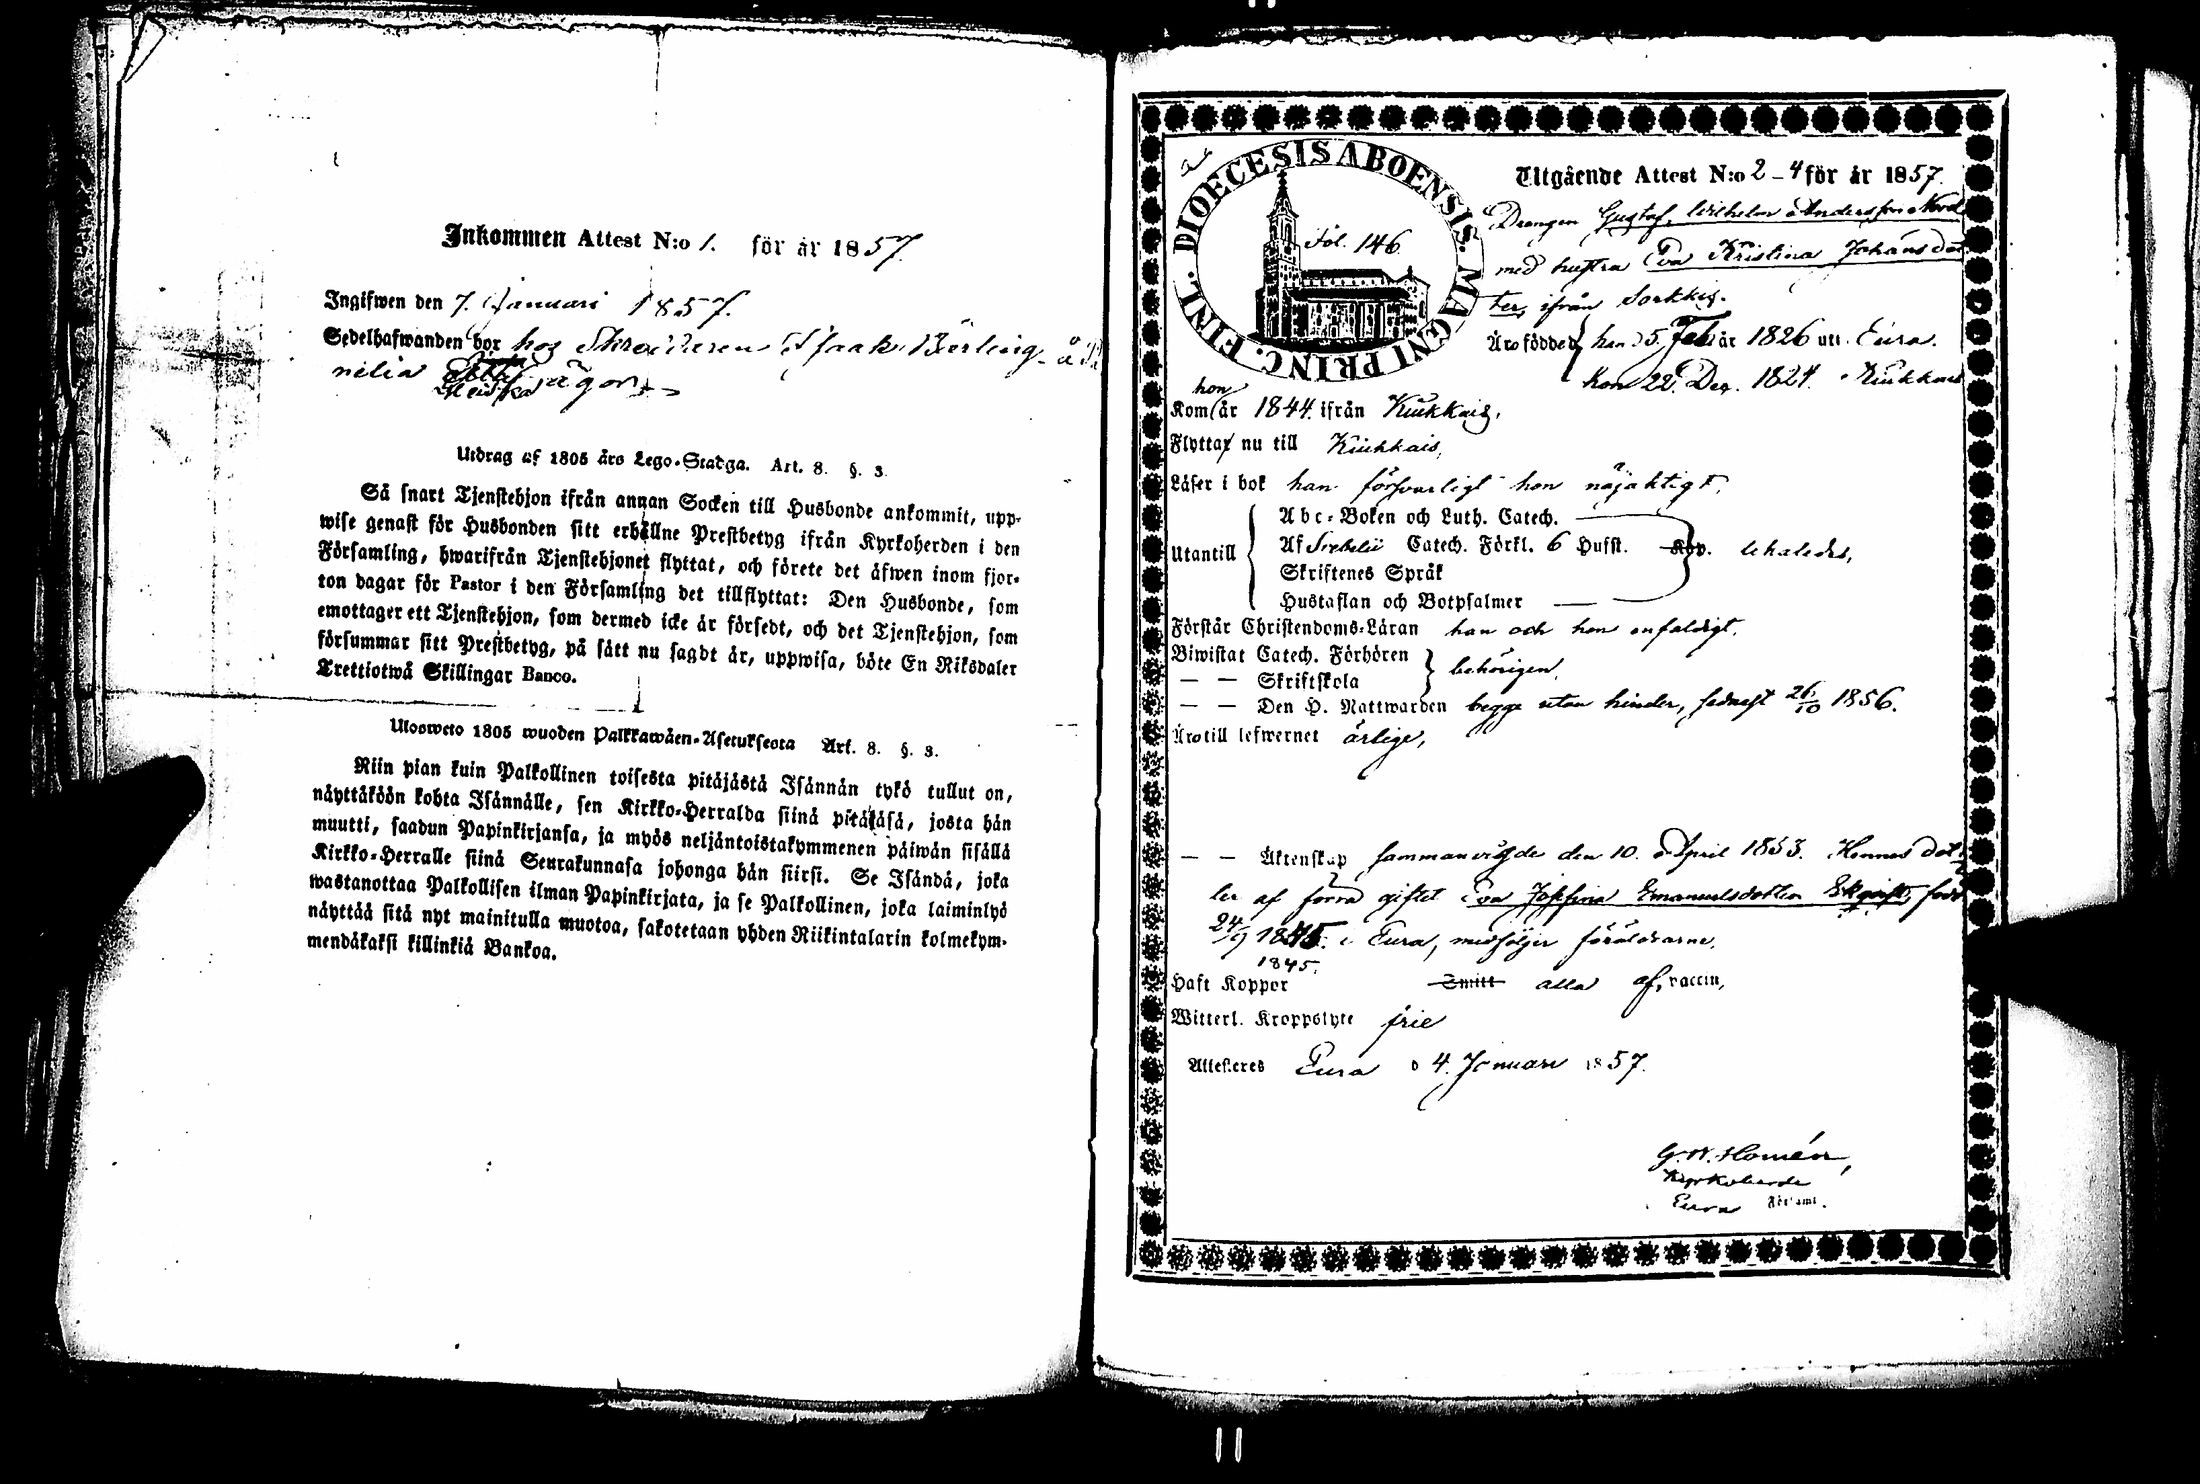 Inkommen Attest N:o 1. för år 1857.
Ingifwen den 7. Januari 1857.
Sedelhafwanden bor hos Skräddaren Isaak Börling å
nilia ägor
Utdrag af 1805 års Lego-Stadga. Art. 8. §. 3.
Så snart Tjenstehjon ifrån annan Socken till Husbonde ankommit, upp-
wise genast för Husbonden sitt erhållne Prestbetyg ifrån Kyrkoherden i den
Församling, hwarifrån Tjenstehjonet flyttat, och förete det äfwen inom fjor-
ton dagar för Pastor i den Församling det tillflyttat: Den Husbonde, som
emottager ett Tjenstehjon, som dermed icke är försedt, och det Tjenstehjon, som
försummar sitt Prestbetyg, på sätt nu sagdt är, uppwisa, böte En Riksdaler
Trettiotwå Skillingar Banco.
Ulosweto 1805 wuoden Palkkawäen-Asetuksesta Art. 8. §. 3.
Niin pian kuin Palkollinen toisesta pitäjästä Isännän tykö tullut on,
näyttäköön kohta Isännälle, sen Kirkko-Herralda siinä pitäjäsä, josta hän
muutti, saadun Papinkirjansa, ja myös neljäntoistakymmenen päiwän sisällä
Kirkko-Herralle siinä Seurakunnasa johonga hän siirsi. Se Isändä, joka
wastanottaa Palkollisen ilman Papinkirjata, ja se Palkollinen, joka laiminlyö
näyttää sitä nyt mainitulla muotoa, sakotetaan yhden Riikintalarin kolmekym-
mendäkaksi killinkiä Bankoa.
DIOECESIS ABOENSIS. MAGNI PRINC. FINL.
Fol. 146.
Utgående Attest N:o 2-4 för år 1857.
Drengen Gustaf Wilhelm Andersson Nord
med hustru Eva Kristina Johansdot
ter, ifrån Sorkkis.
Äro födde han 5. Feb: år 1826 uti Eura.
hon 22. Dec. 1824. Kiukkais
hon
Kom år 1844. ifrån Kiukkais,
Flytta nu till Kiukkais,
Läser i bok han försvarligt hon nöjaktigt,
Utantill
Abc-Boken och Luth. Catech.
Af Svebelii Catech. Förkl. 6 Hufst.
Skriftenes Språk
Hustaflan och Botpsalmer
Förstår Christendoms-Läran han och hon enfaldigt.
Biwistat Catech. Förhören
— — Skriftskola behörigen,
— — Den H. Nattwarden begge utan hinder, sednast 26/10 1856.
Äro till lefwernet ärlige,
— — Äktenskap sammanvigde den 10. April 1853. Hennes dot
ter af förra giftet Eva Josefina Emanuelsdotter Ekqvist, född
24/9 1845. i Eura, medföljer föräldrarne.
1845.
Haft Koppor Smitt alla af vaccin,
Witterl. Kroppslyte frie
Attesteres Eura d 4. Januari 1857.
G. W. Homén,
Kyrkoherde
Eura Förs:aml.